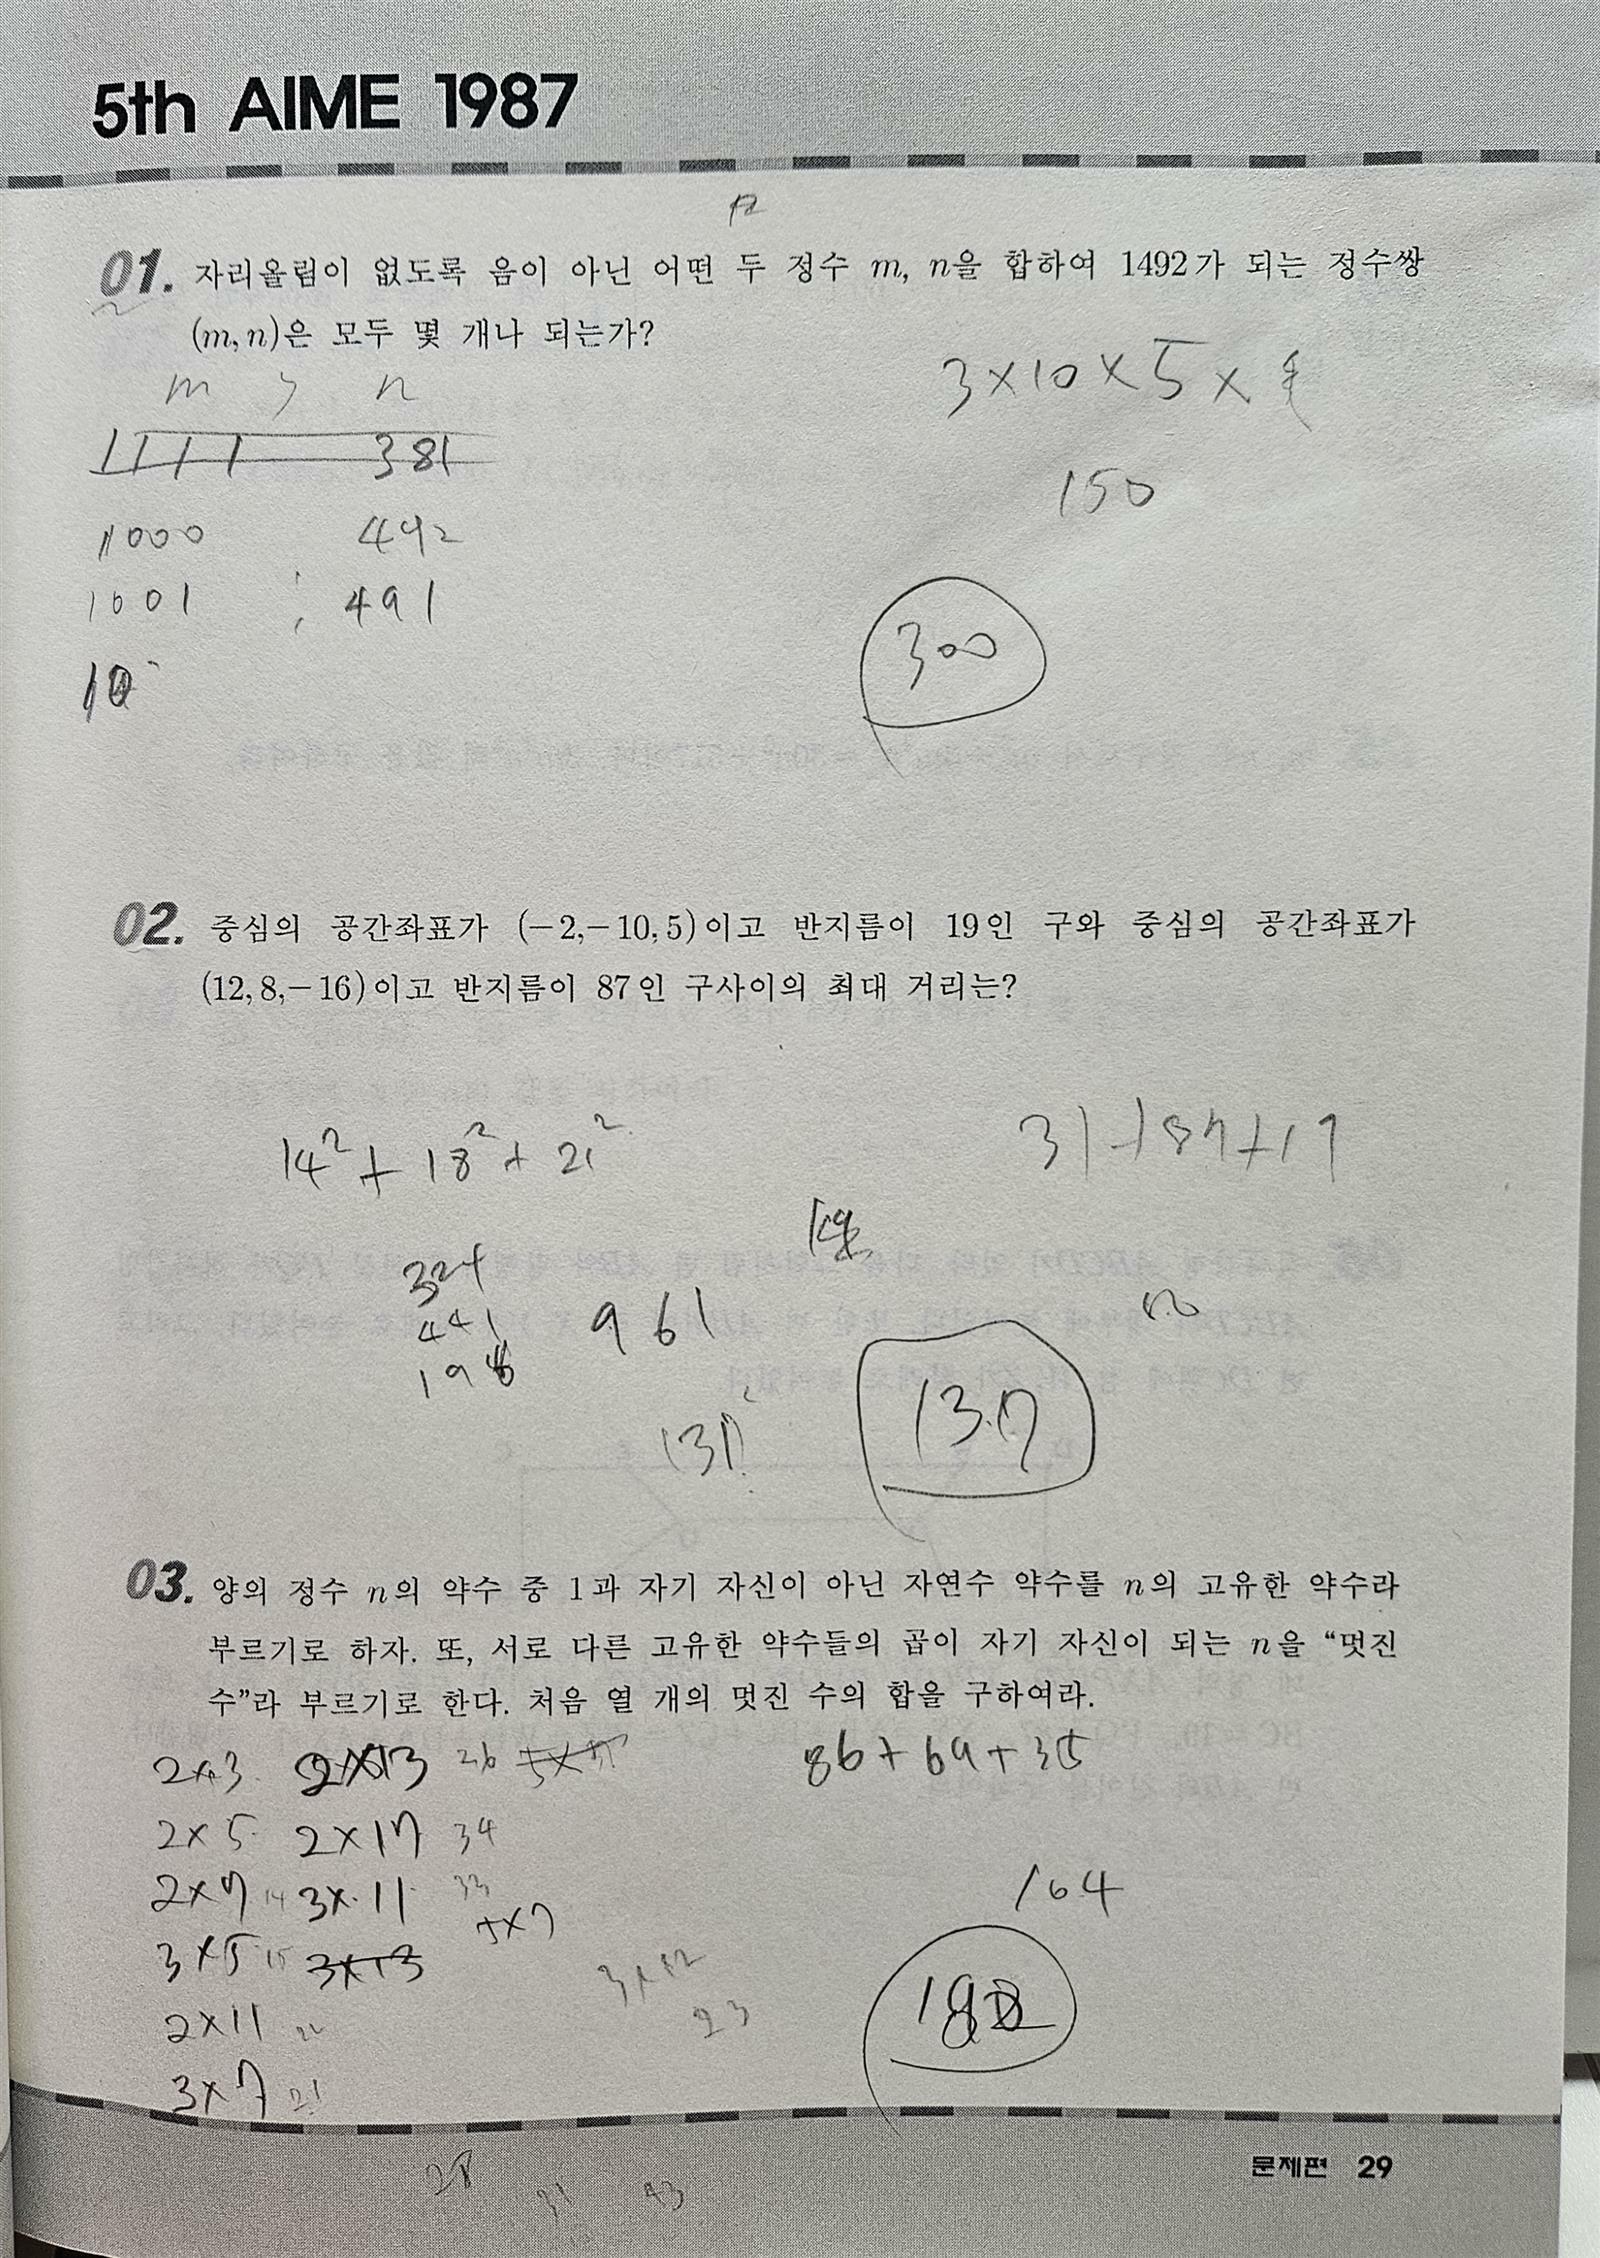 5th AIME 1987
01. 자리올림이 없도록 음이 아닌 어떤 두 정수 m, n을 합하여 1492가 되는 정수쌍
(m, n)은 모두 몇 개나 되는가?
m , n
3×10×5×
1111 381
150
1000 492
1001 491
300
10
02. 중심의 공간좌표가 (−2,−10, 5)이고 반지름이 19인 구와 중심의 공간좌표가
(12, 8,−16)이고 반지름이 87인 구사이의 최대 거리는?
14²+18²+21²
31+87+19
324
441
196
961
137
137
03. 양의 정수 n의 약수 중 1과 자기 자신이 아닌 자연수 약수를 n의 고유한 약수라
부르기로 하자. 또, 서로 다른 고유한 약수들의 곱이 자기 자신이 되는 n을 “멋진
수”라 부르기로 한다. 처음 열 개의 멋진 수의 합을 구하여라.
2×3 2×13 26
86+69+35
2×5 2×17 34
2×7 14 3×11 33
5×7
164
3×5 15 3×13
2×11 22
23
3×7 21
문제편 29
28
31
43